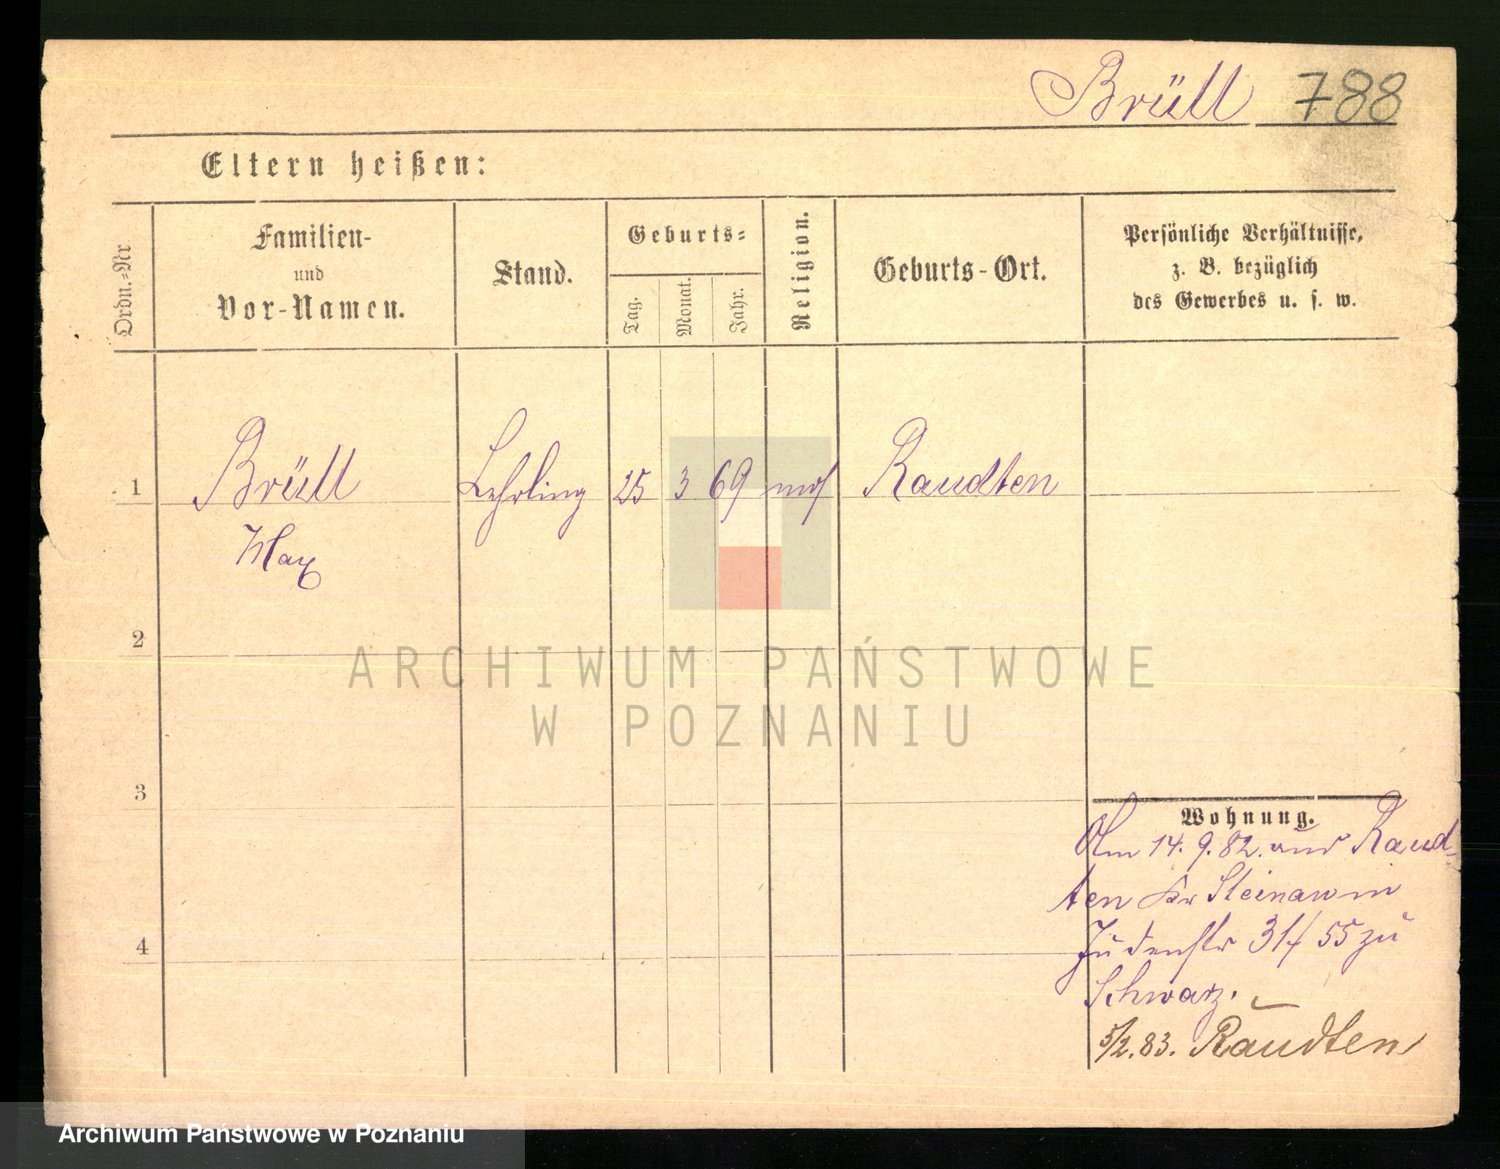 Brüll 788
Eltern heißen:
Ordn.-Nr
Familien-
und
Vor-Namen.
Stand.
Geburts-
Tag.
Monat.
Jahr.
Religion.
Geburts-Ort.
Persönliche Verhältnisse,
z. B. bezüglich
des Gewerbes u. s. w.
1 Brüll Lehrling 25 3 69 mos Raudten
Max
2
3
4
Wohnung.
Am 14.9.82. aus Raud-
ten Kr Steinau in
Judenstr 31/ 55 zu
Schwarz.
5/2.83. Raudten
ARCHIWUM PAŃSTWOWE
W POZNANIU
Archiwum Państwowe w Poznaniu